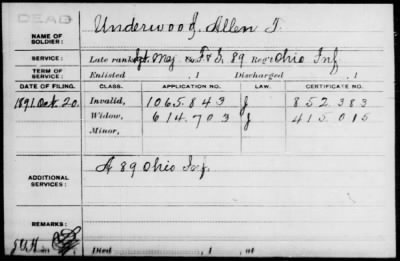 DEAD
NAME OF SOLDIER: Underwood, Allen T.
SERVICE: Late rank Sgt. Maj. Co. F&S, 89 Reg't Ohio Inf
TERM OF SERVICE: Enlisted , 1 Discharged , 1
DATE OF FILING. CLASS. APPLICATION NO. LAW. CERTIFICATE NO.
1891 Oct. 20. Invalid, 1065.843 J 852.383
Widow, 614.703 J 415.015
Minor,
ADDITIONAL SERVICES: A 89 Ohio Inf.
REMARKS:
Died , 1 , at